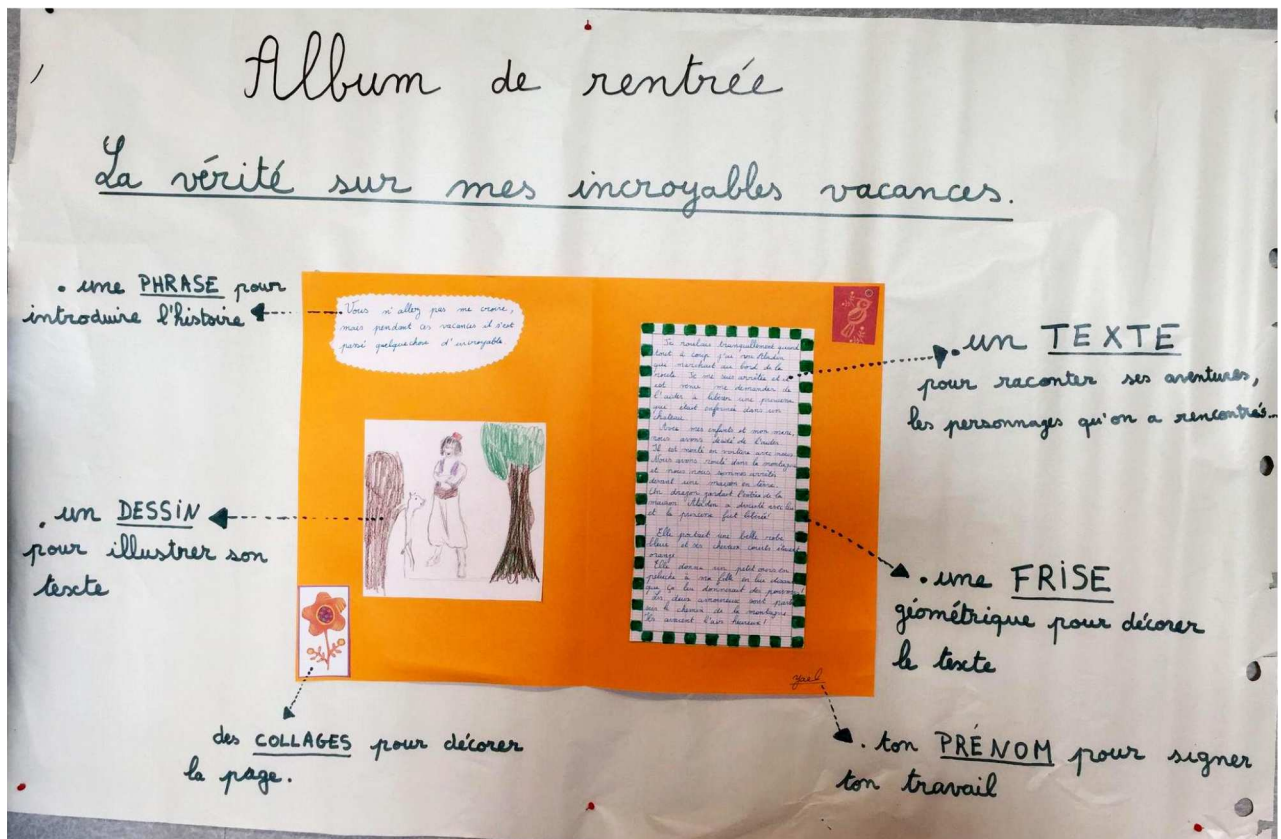 Album de rentrée
La vérité sur mes incroyables vacances.
. une PHRASE pour
introduire l'histoire
Vous n'allez pas me croire,
mais pendant ces vacances il s'est
passé quelque chose d'incroyable.
. un DESSIN
pour illustrer son
texte
des COLLAGES pour décorer
la page.
Je roulais tranquillement quand
tout à coup j'ai vu Aladin
qui marchait au bord de la
route. Je me suis arrêtée et il
est venu me demander de
l'aider à libérer une princesse
qui était enfermée dans un
château.
Avec mes enfants et mon mari,
nous avons décidé de l'aider.
Il est monté en voiture avec nous.
Nous avons roulé dans la montagne
et nous nous sommes arrêtés
devant une maison en terre.
Un dragon gardait l'entrée de la
maison. Aladin a discuté avec lui
et la princesse fut libérée!
Elle portait une belle robe
bleue et ses cheveux courts étaient
orange.
Elle donna un petit ours en
peluche à ma fille en lui disant
que ça lui donnerait des pouvoirs!
Les deux amoureux sont partis
sur le chemin de la montagne.
Ils avaient l'air heureux!
Yael
. un TEXTE
pour raconter ses aventures,
les personnages qu'on a rencontrés...
. une FRISE
géométrique pour décorer
le texte
. ton PRÉNOM pour signer
ton travail